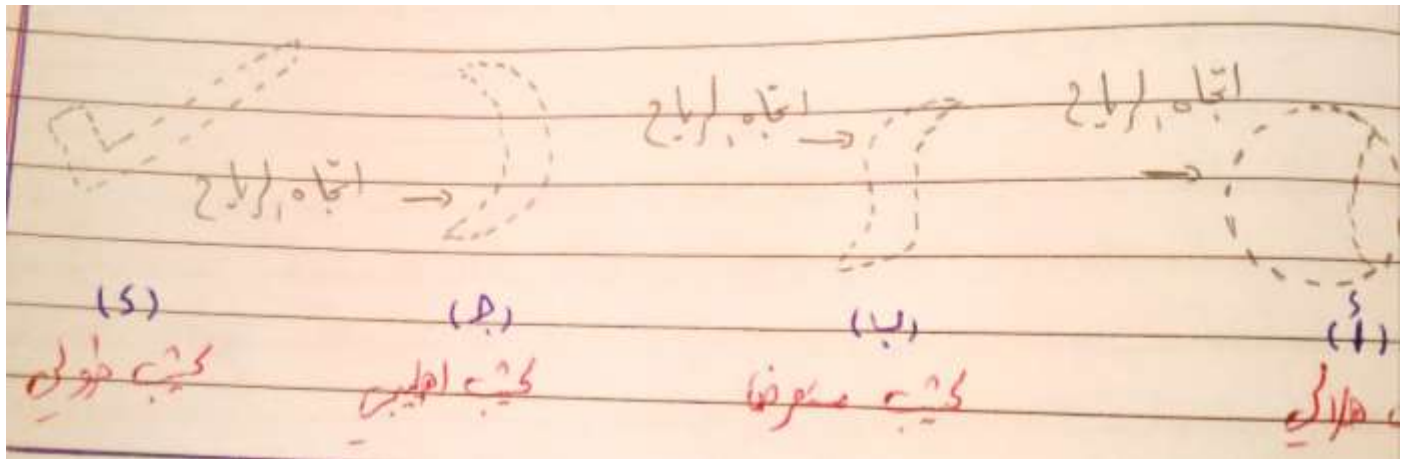 اتجاه الرياح
اتجاه الرياح
اتجاه الرياح
(أ)
(ب)
(جـ)
(د)
هلالي
كثيب مستعرض
كثيب إهليجي
كثيب طولي